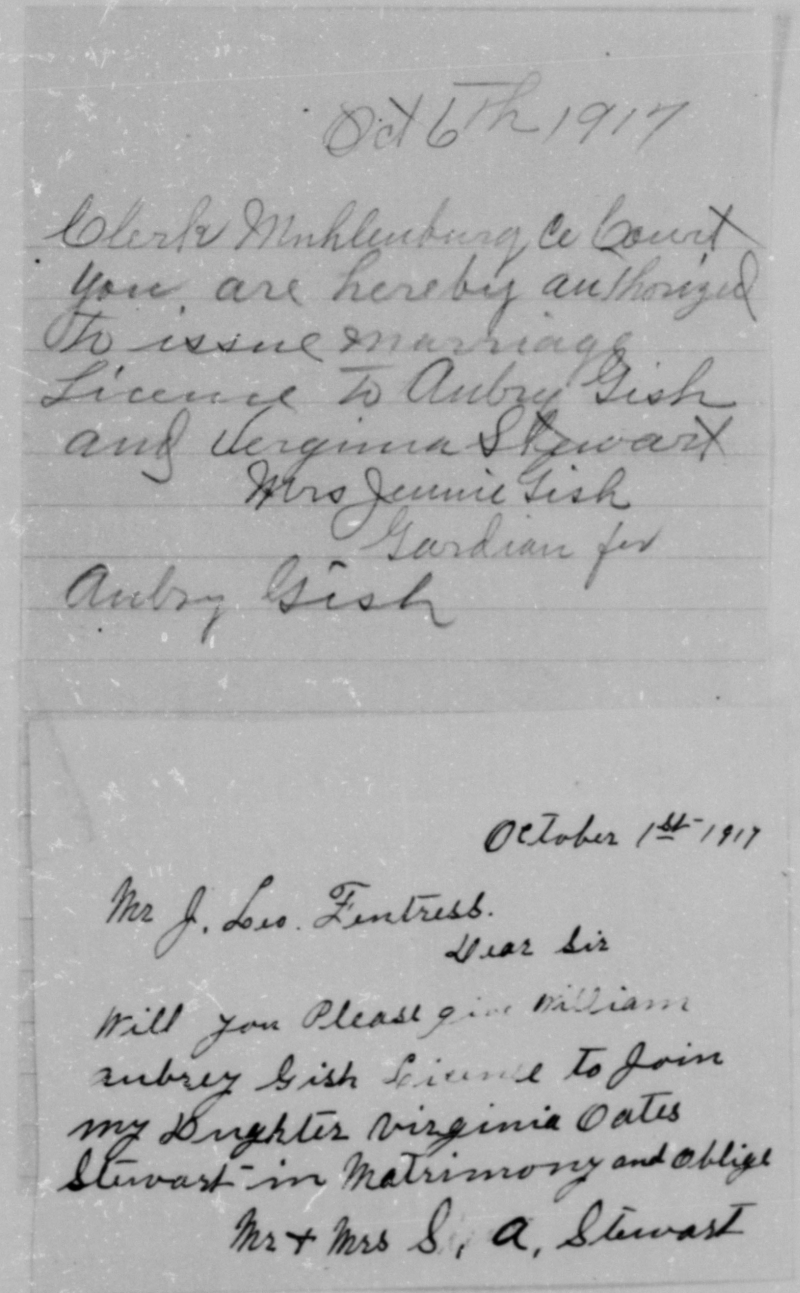 Oct 6th 1917
Clerk Muhlenburg Co Court
you are hereby authorized
To issue marriage
License To Aubry Gish
and Verginia Stewart
Mrs Jennie Gish
Gardian for
Aubry Gish
October 1st 1917
Mr J. Leo. Fentress.
Dear Sir
Will you Please give William
aubrey Gish License to Join
my Dughter Virginia Oates
Stewart in Matrimony and oblige
Mr + Mrs S, A, Stewart